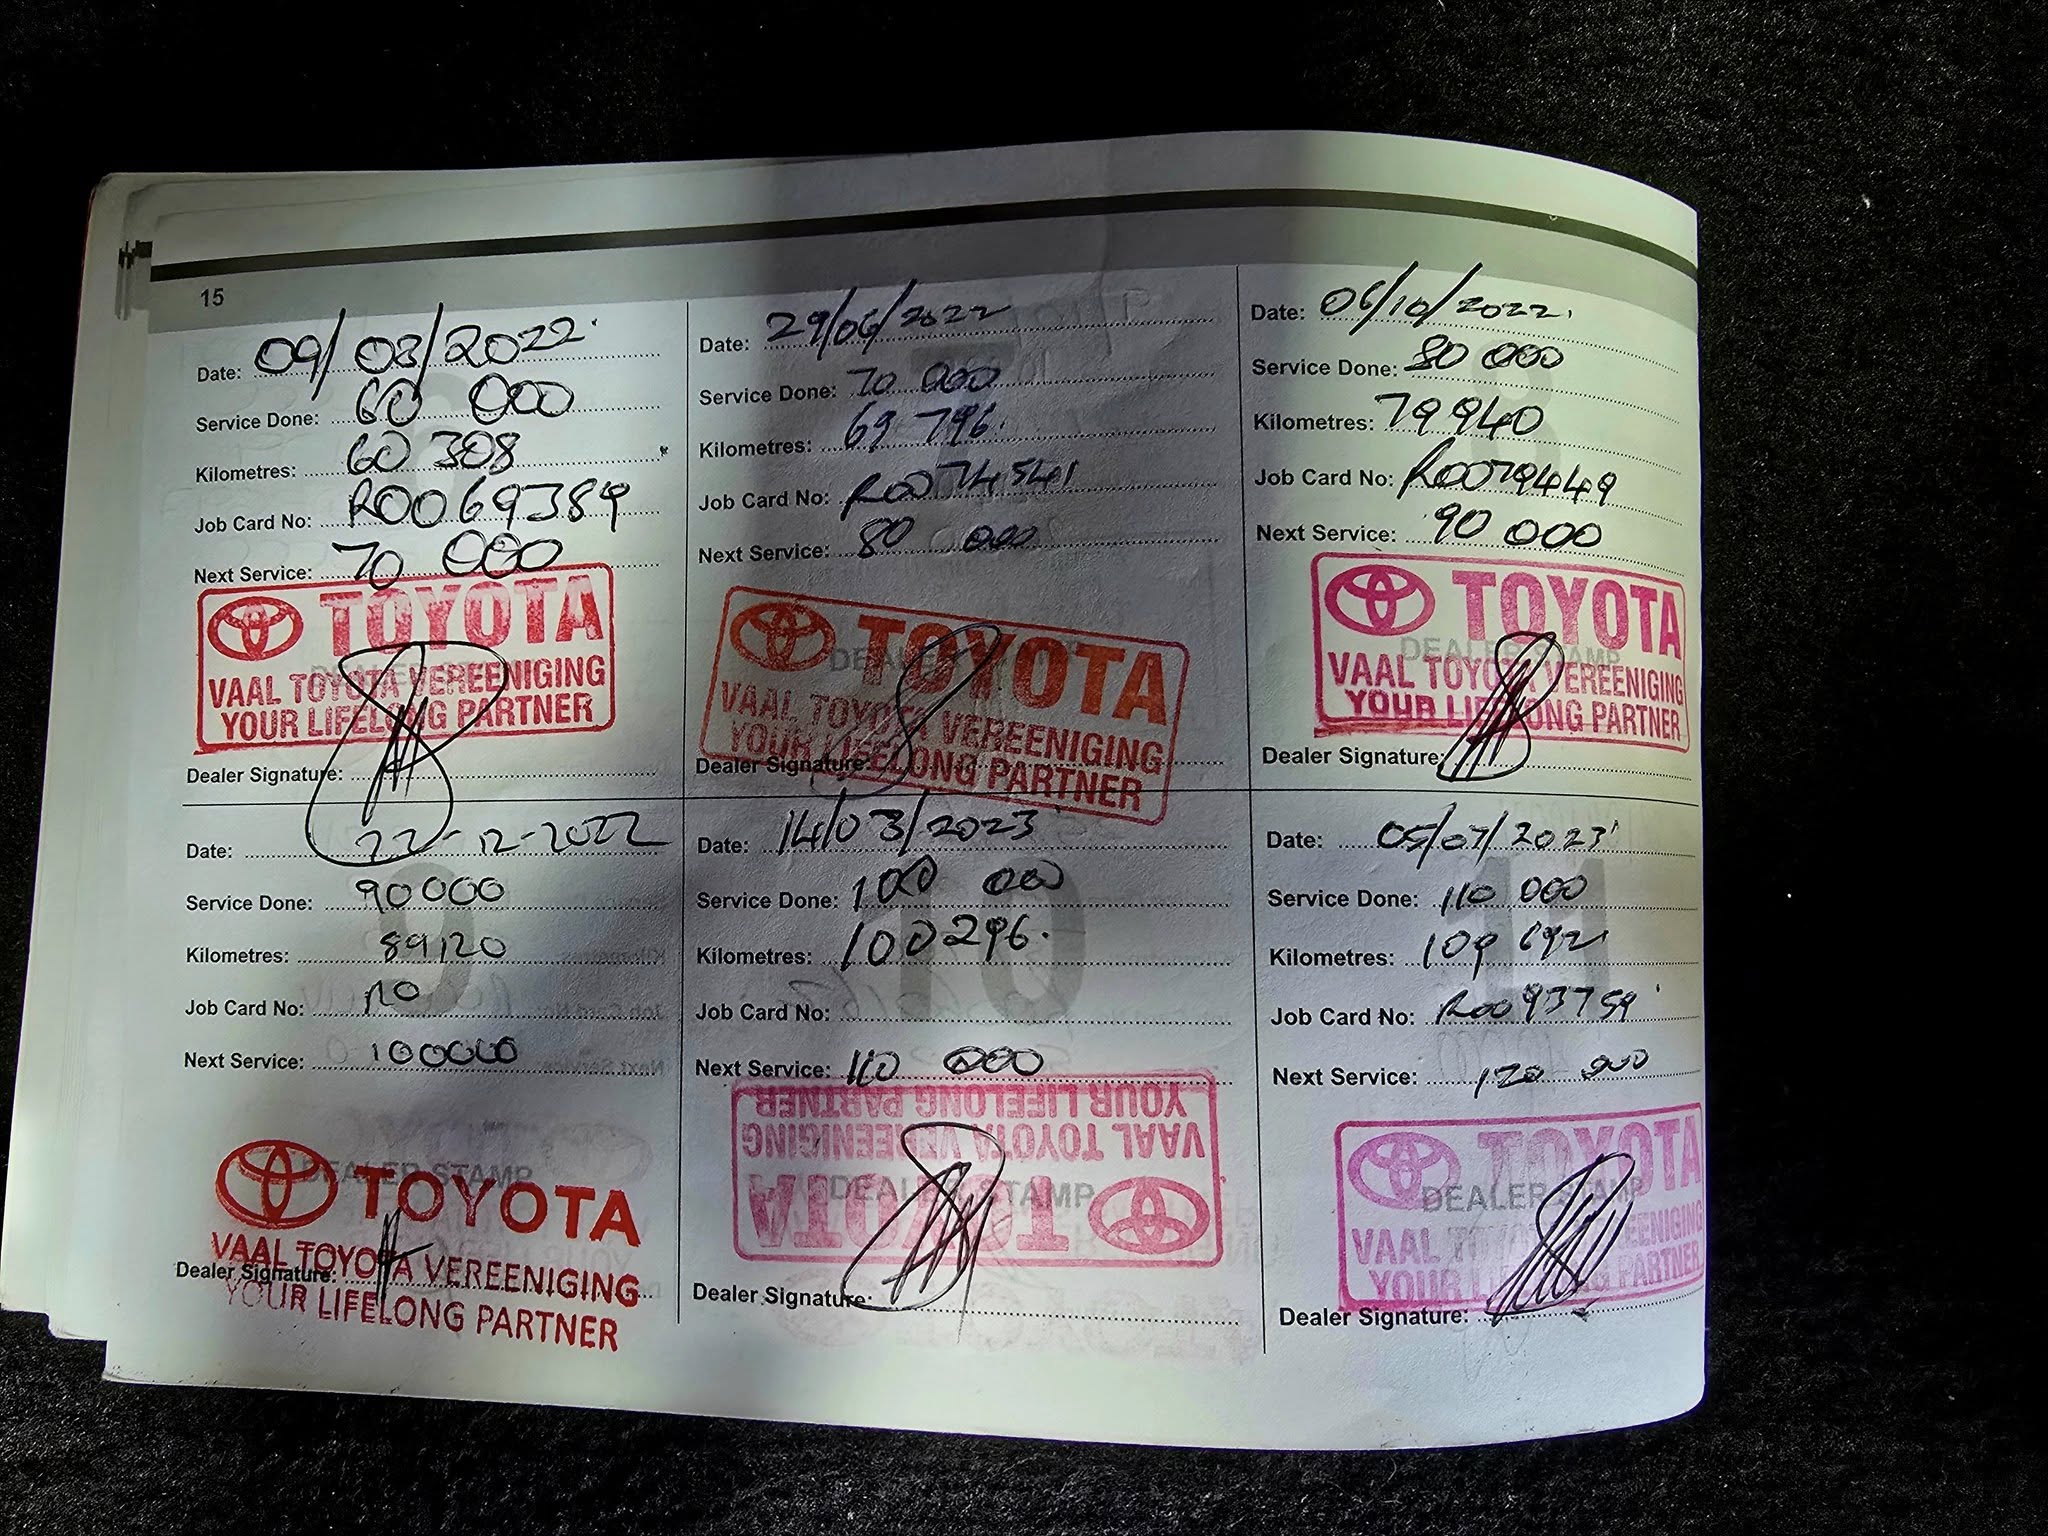 15
Date: 09/03/2022
Service Done: 60 000
Kilometres: 60 308
Job Card No: R0069389
Next Service: 70 000
TOYOTA
VAAL TOYOTA VEREENIGING
YOUR LIFELONG PARTNER
Dealer Signature:
Date: 29/06/2022
Service Done: 70 000
Kilometres: 69 796
Job Card No: R0074541
Next Service: 80 000
DEALER
TOYOTA
VAAL TOYOTA VEREENIGING
YOUR LIFELONG PARTNER
Dealer Signature:
Date: 06/10/2022
Service Done: 80 000
Kilometres: 79940
Job Card No: R0079449
Next Service: 90 000
TOYOTA
DEALER STAMP
VAAL TOYOTA VEREENIGING
YOUR LIFELONG PARTNER
Dealer Signature:
Date: 22-12-2022
Service Done: 90000
Kilometres: 89120
Job Card No:
Next Service: 100000
9
DEALER STAMP
TOYOTA
VAAL TOYOTA VEREENIGING
Dealer Signature:
YOUR LIFELONG PARTNER
Date: 14/03/2023
Service Done: 100 000
Kilometres: 100296
Job Card No:
Next Service: 110 000
10
YOUR LIFELONG PARTNER
VAAL TOYOTA VEREENIGING
DEALER STAMP
TOYOTA
Dealer Signature:
Date: 05/07/2023
Service Done: 110 000
Kilometres: 109 692
Job Card No: R0093759
Next Service: 120 000
11
TOYOTA
DEALER STAMP
VAAL TOYOTA VEREENIGING
YOUR LIFELONG PARTNER
Dealer Signature: